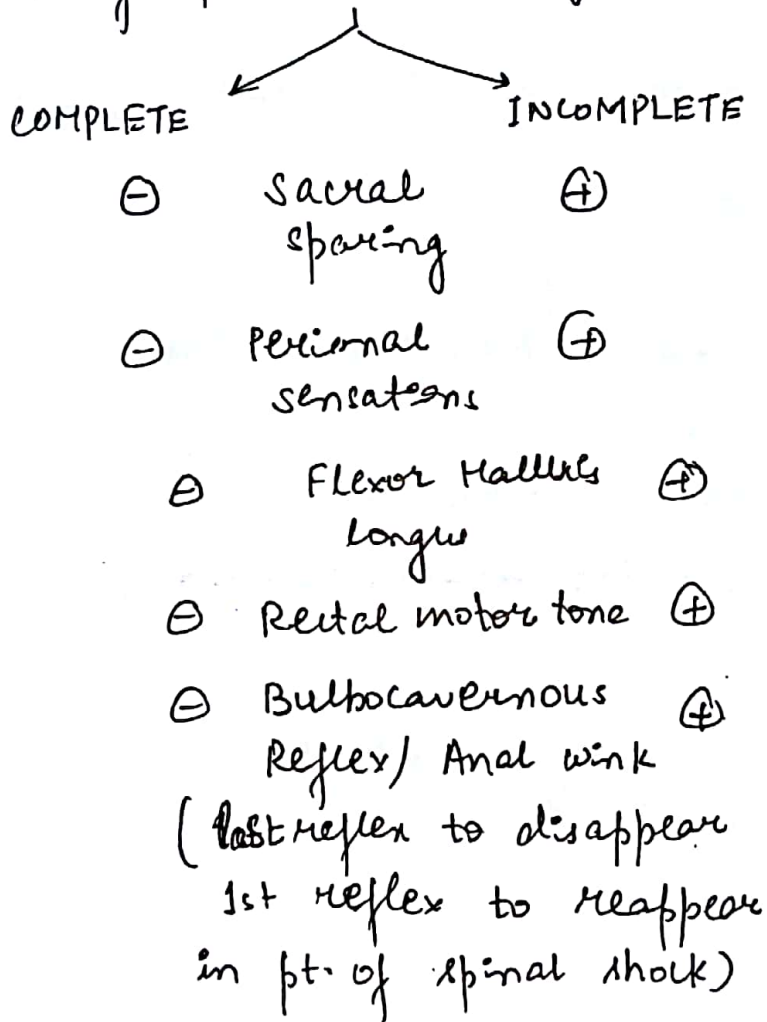 COMPLETE INCOMPLETE
⊖ Sacral ⊕
sparing
⊖ Perional ⊕
sensations
⊖ Flexor Hallucis ⊕
longus
⊖ Rectal motor tone ⊕
⊖ Bulbocavernous ⊕
Reflex/ Anal wink
(last reflex to disappear
1st reflex to reappear
in pt. of spinal shock)